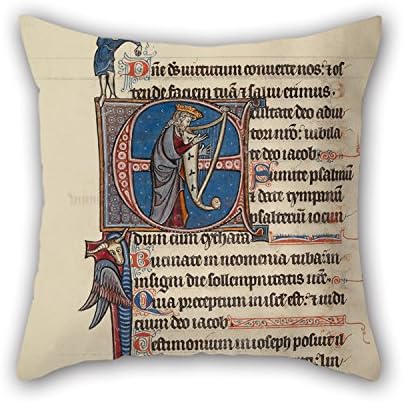 Dñe ds uirtutum conuerte nos: & os
tende faciem tuã & salui erimus.
Exultate deo adiu
tori nrõ: iubila
te deo iacob.
Sumite psalmũ
& date tympanũ
psalteriũ iocun
dum cum cythara
Bucinate in neomenia tuba: in
insigni die sollempnitatis ure.
Quia preceptum in isrl est: & iudi
cium deo iacob
Testimonium in ioseph posuit
lin